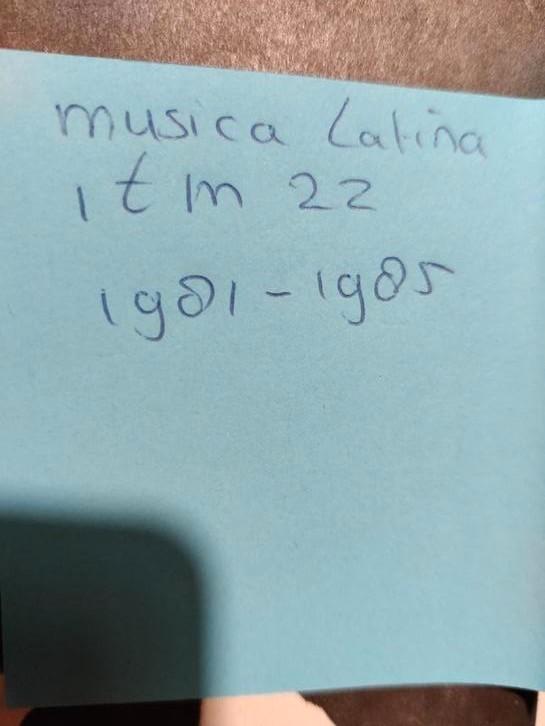 musica Latina
1 t m 22
1981-1985